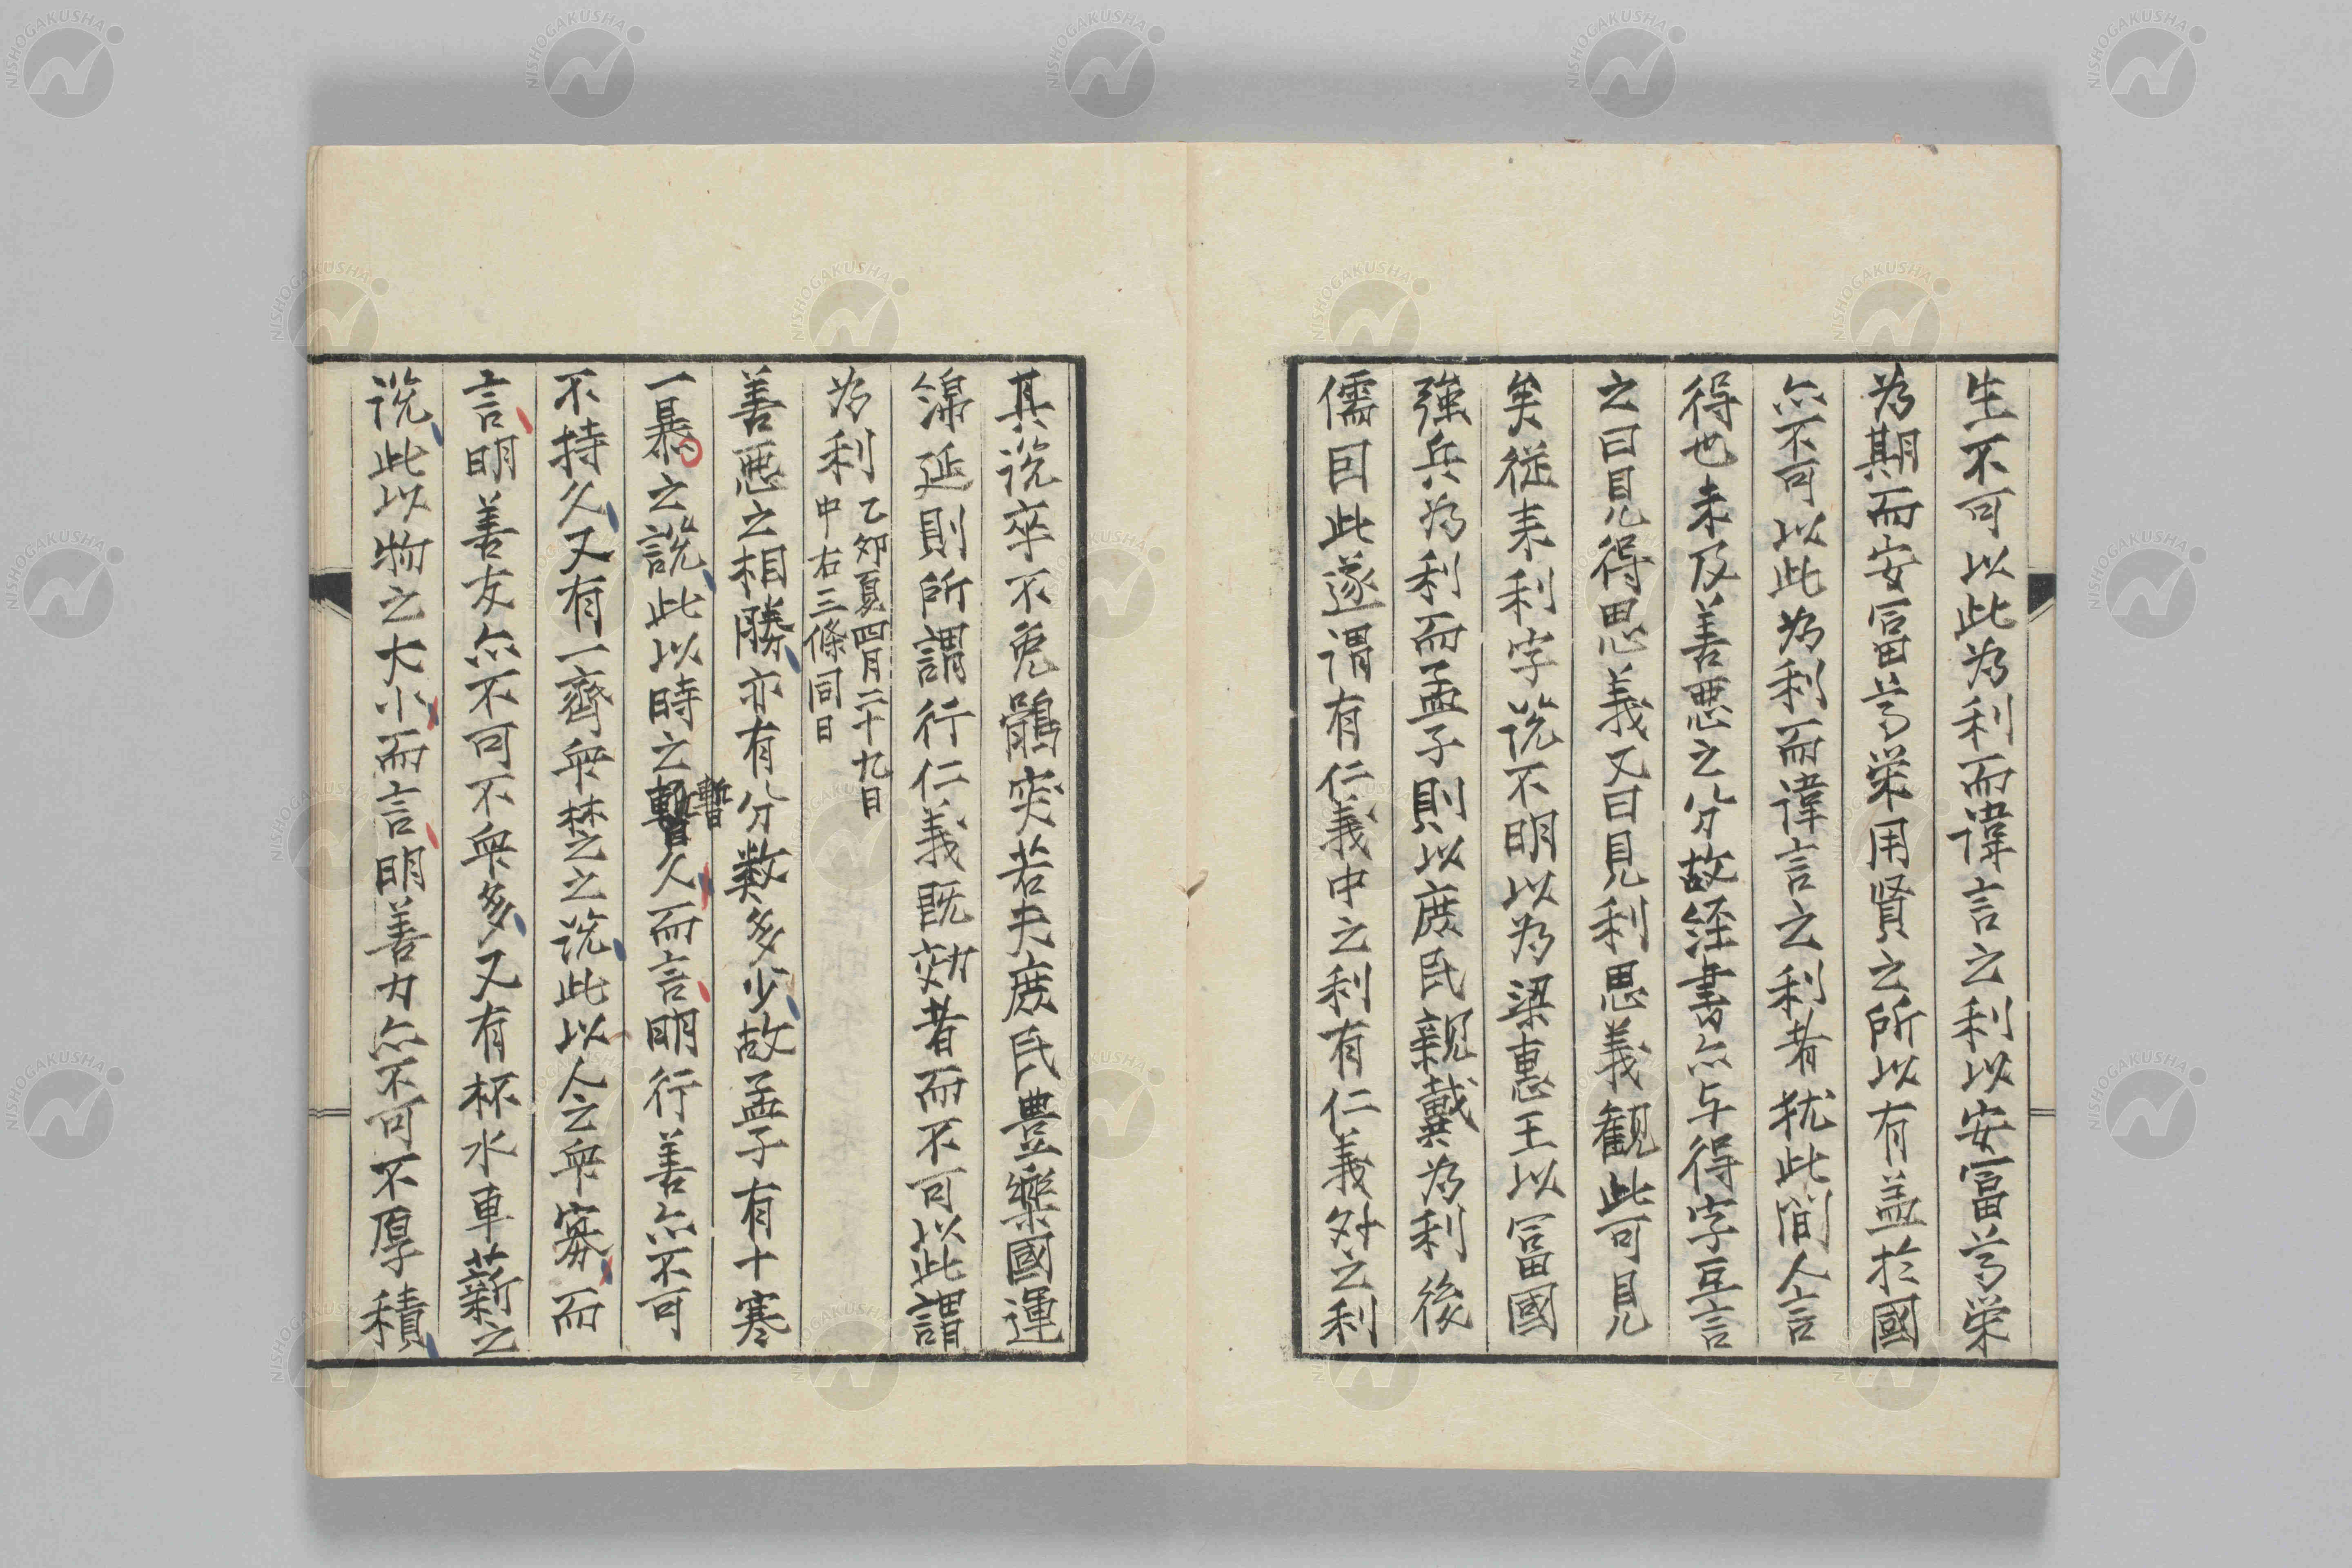 生不可以此為利而諱言之利以安富尊栄
為期而安富尊栄用賢之所以有益於國
亦不可以此為利而諱言之利者犹此間人言
得也未及善悪之分故経書亦与得字互言
之曰見得思義又曰見利思義観此可見
矣従来利字説不明以為梁惠王以富國
強兵為利而孟子則以庶民親戴為利後
儒因此遂謂有仁義中之利有仁義外之利
其説卒不免鶻突若夫庶民豊樂國運
綿延則所謂行仁義既効者而不可以此謂
為利
乙夘夏四月二十九日
中右三條同日
善悪之相勝亦有分数多少故孟子有十寒
一暴之説此以時之暫久而言明行善亦不可
暫
不持久又有一齊衆楚之説此以人之衆寡而
言明善友亦不可不衆多又有杯水車薪之
説此以物之大小而言明善力亦不可不厚積
NISHOGAKUSHA